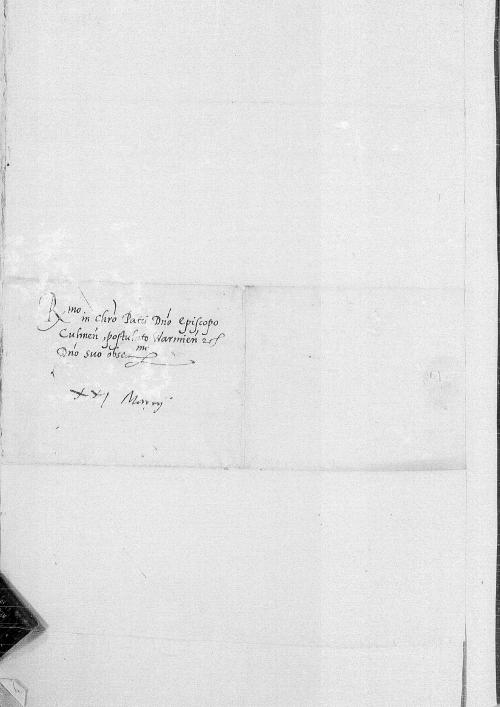 Rmo in Chro Patri Dno Episcopo
Culmen postulato Warmien
Dno suo obsermo